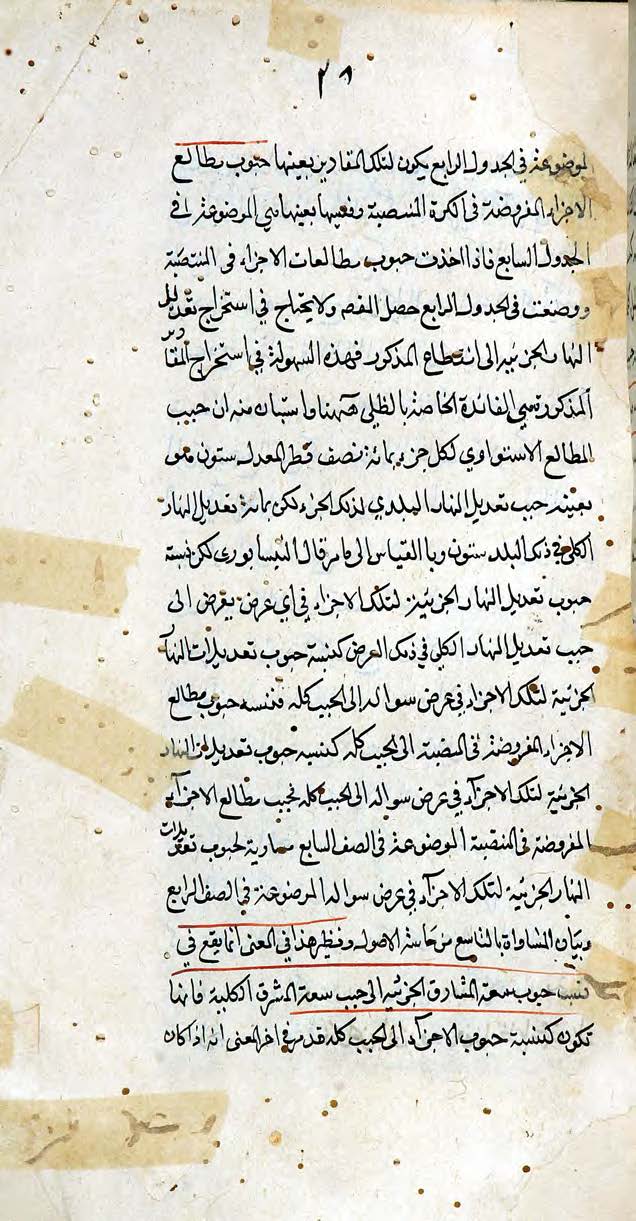 ٢٨
الموضوعة في الجدول الرابع يكون لتلك المقادير بعينها جيوب مطالع
الاجزاء المفروضة في الكرة المنتصبة وبعينها هي الموضوعة في
الجدول السابع فاذا اخذت جيوب مطالعات الاجزاء في المنتصبة
ووضعت في الجدول الرابع حصل الغرض ولا يحتاج في استخراج تعديل
النهار الجزئية الى المذكور فهذه السهولة في استخراج المقادير
المذكورة هي الفائدة الخاصة بالظلي ههنا واستبان منه ان جيب
المطالع الاستواوي لكل جزء بما نصف قطر المعدل ستون هو
بعينه جيب تعديل النهار البلدي لذلك الجزء لكن بما تعديل النهار
الكلي في ذلك البلد ستون وبالقياس الى ما مر قال النيسابوري لكن نسبة
جيوب تعديل النهار الجزئية لتلك الاجزاء في اي عرض يفرض الى
جيب تعديل النهار الكلي في ذلك العرض كنسبة جيوب تعديلات النهار
الجزئية لتلك الاجزاء في عرض سو الد الى الجيب كله فنسبة جيوب مطالع
الاجزاء المفروضة في المنتصبة الى الجيب كله كنسبة جيوب تعديل النهار
الجزئية لتلك الاجزاء في عرض سو الد الى الجيب كله فجيب مطالع الاجزاء
المفروضة في المنتصبة الموضوعة في الصف السابع مساوية لجيوب تعديلات
النهار الجزئية لتلك الاجزاء في عرض سو الد الموضوعة في الصف الرابع
وبيان المساواة بالتاسع من خامسة الاصول ونظير هذا في المعنى انما يقع في
نسب جيوب سعة المشارق الجزئية الى جيب سعة المشرق الكلية فانها
تكون كنسبة جيوب الاجزاء الى الجيب كله قد مر في اخر المعنى انه اذا كان